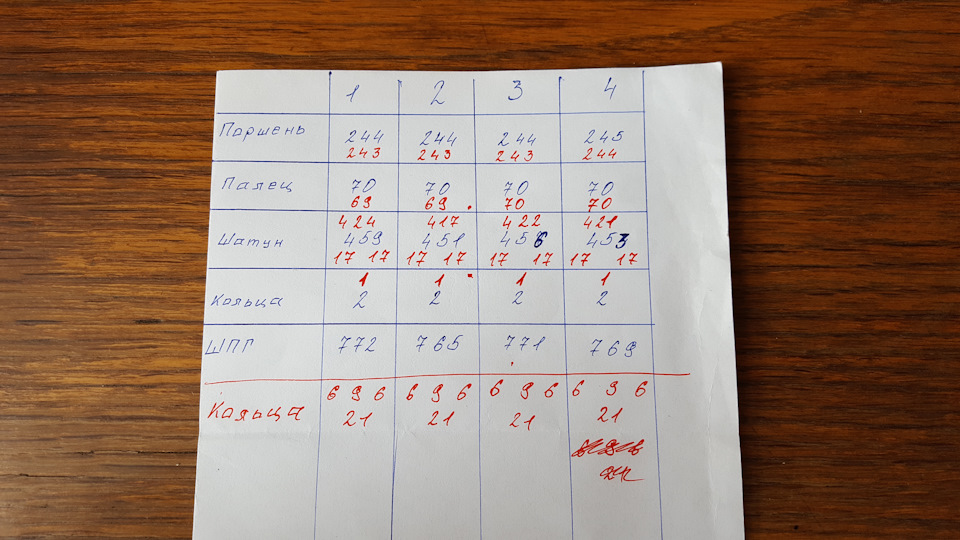 1 2 3 4
Поршень 244 244 244 245
243 243 243 244
Палец 70 70 70 70
69 69 70 70
424 417 422 421
Шатун 459 451 456 453
17 17 17 17 17 17 17 17
1 1 1 1
Кольца 2 2 2 2
ШПГ 772 765 771 769
6 9 6 6 9 6 6 9 6 6 9 6
Кольца 21 21 21 21